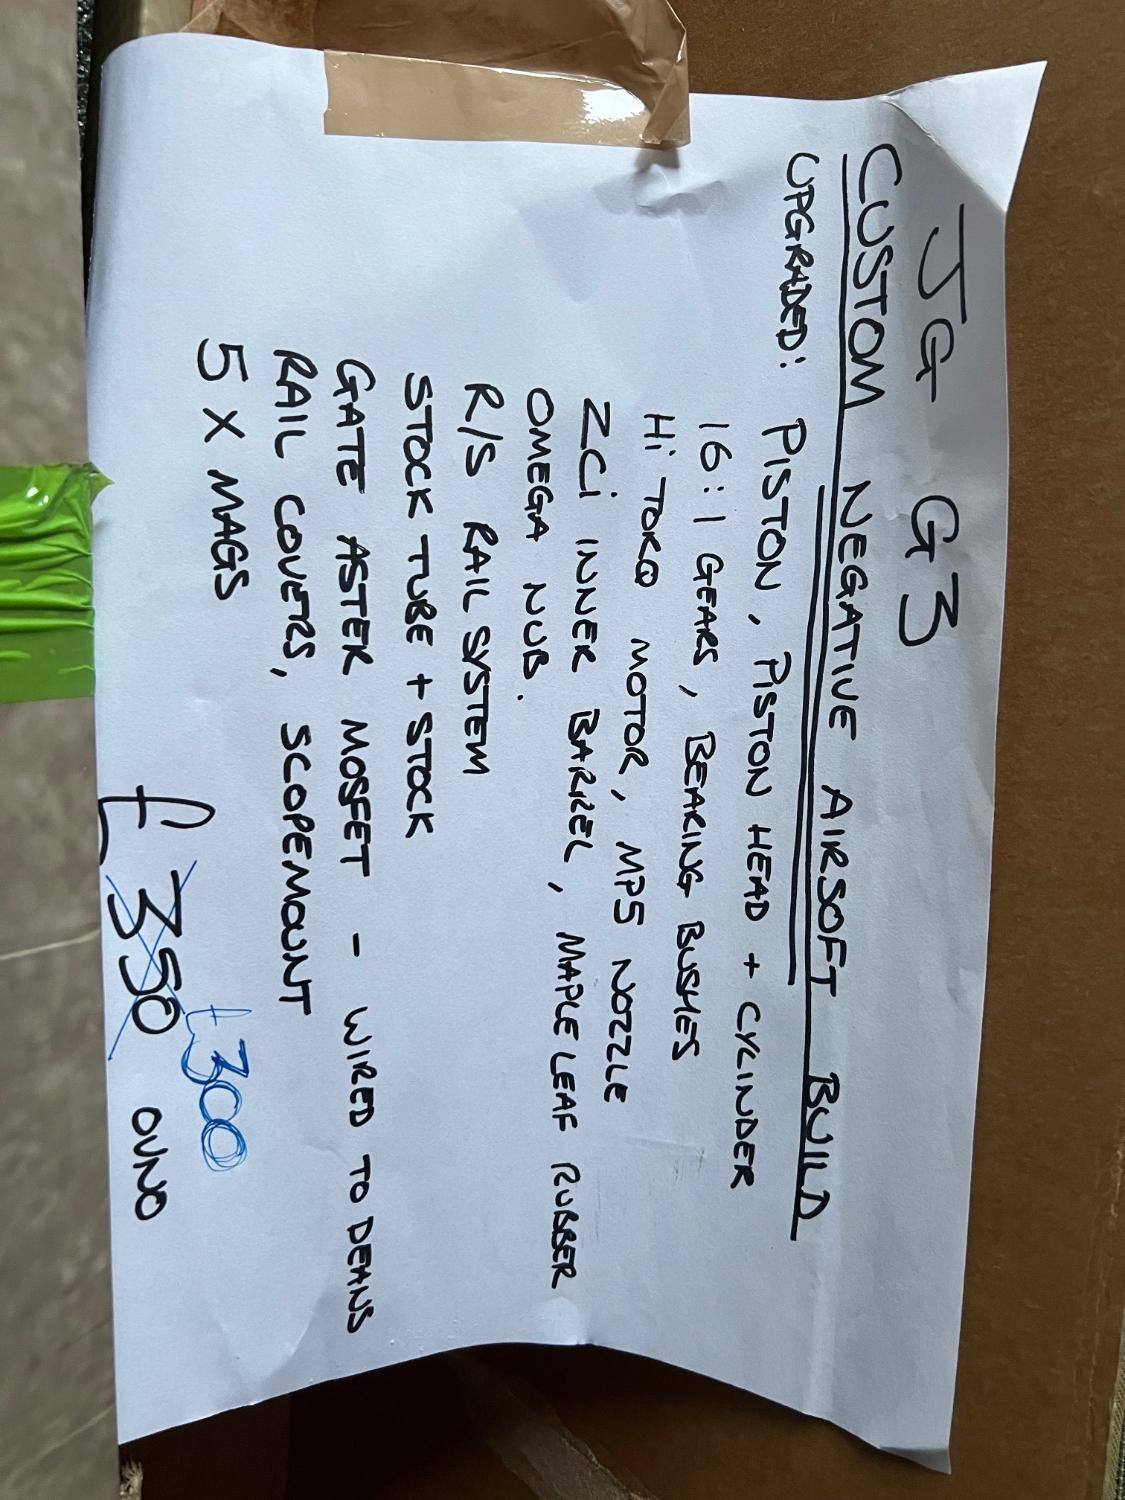 JG G3
CUSTOM NEGATIVE AIRSOFT BUILD
UPGRADED: PISTON, PISTON HEAD + CYLINDER
16:1 GEARS, BEARING BUSHES
Hi TORQ MOTOR, MP5 NOZZLE
ZCi INNER BARREL, MAPLE LEAF RUBBER
OMEGA NUB.
R/S RAIL SYSTEM
STOCK TUBE + STOCK
GATE ASTER MOSFET - WIRED TO DEANS
RAIL COVERS, SCOPEMOUNT
5 X MAGS
£300
£350 OVNO